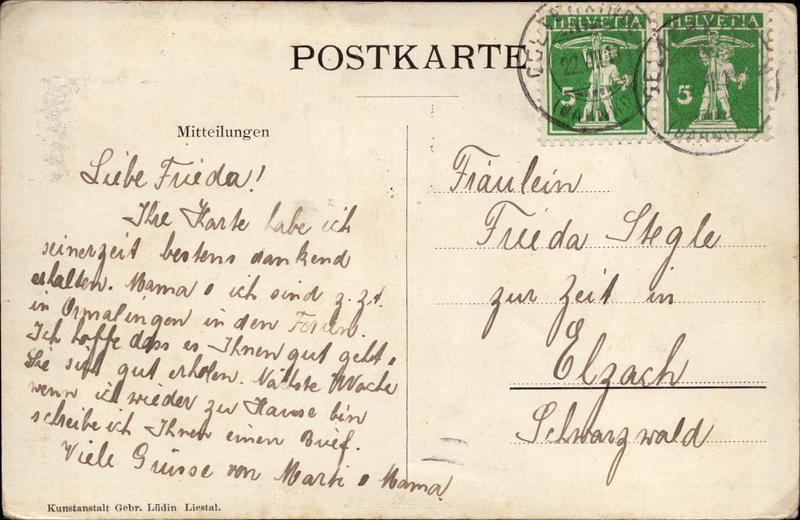 POSTKARTE
HELVETIA
HELVETIA
5
5
22. VII.
Mitteilungen
Liebe Frieda!
Ihre Karte habe ich
seinerzeit bestens dankend
erhalten. Mama & ich sind z. Zt.
in Ormalingen in den Ferien.
Ich hoffe dass es Ihnen gut geht &
Sie sich gut erholen. Nächste Woche
wenn ich wieder zu Hause bin
schreibe ich Ihnen einen Brief.
Viele Grüsse von Marti & Mama.
Fräulein
Frieda Stegle
zur Zeit in
Elzach
Schwarzwald
Kunstanstalt Gebr. Lüdin Liestal.